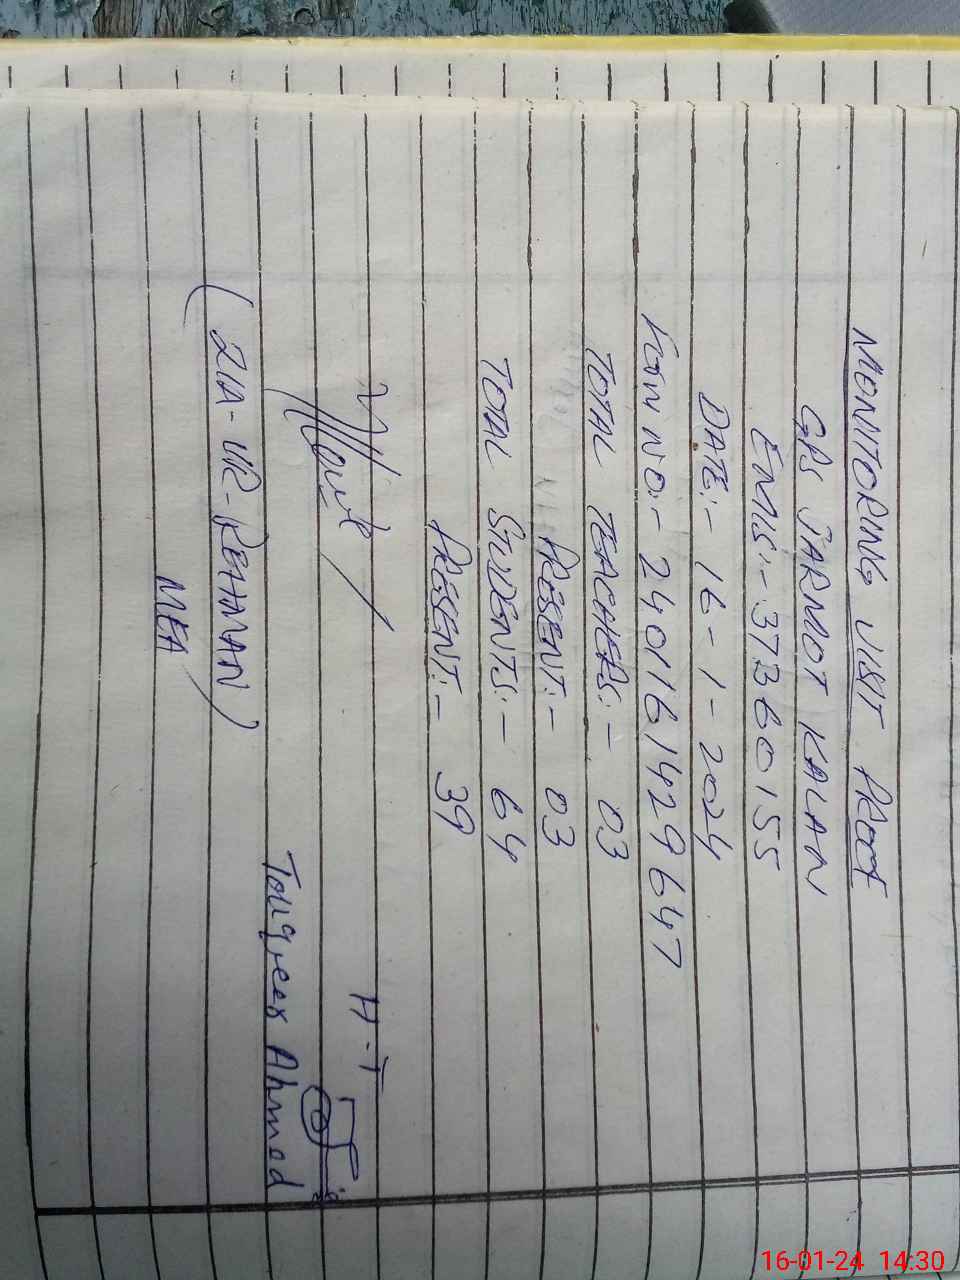 MONITORING VISIT PROOF
GPS JARMOT KALAN
EMIS:- 37360155
DATE:- 16-1-2024
NO:- 240161429647
TOTAL TEACHERS:- 03
PRESENT:- 03
TOTAL STUDENTS:- 64
PRESENT:- 39
H-T
Touqeer Ahmed
(ZIA-UR-REHMAN)
MEA
16-01-24 14:30